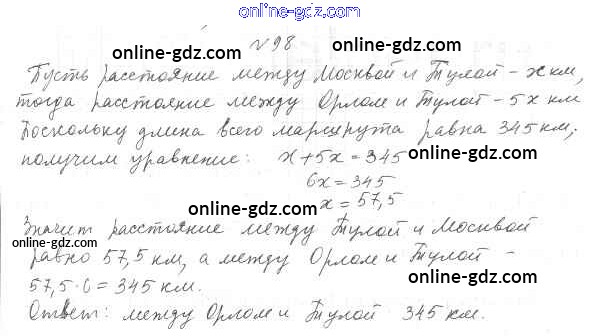 online-gdz.com
№98
online-gdz.com online-gdz.com
Пусть расстояние между Москвой и Тулой - x км,
тогда расстояние между Орлом и Тулой - 5x км
Поскольку длина всего маршрута равна 345 км,
получим уравнение: x+5x=345
online-gdz.com
6x=345
x=57,5
online-gdz.com
Значит расстояние между Тулой и Москвой
online-gdz.com
равно 57,5 км, а между Орлом и Тулой -
57,5·6=345 км.
online-gdz.com
Ответ: между Орлом и Тулой 345 км.
online-gdz.com